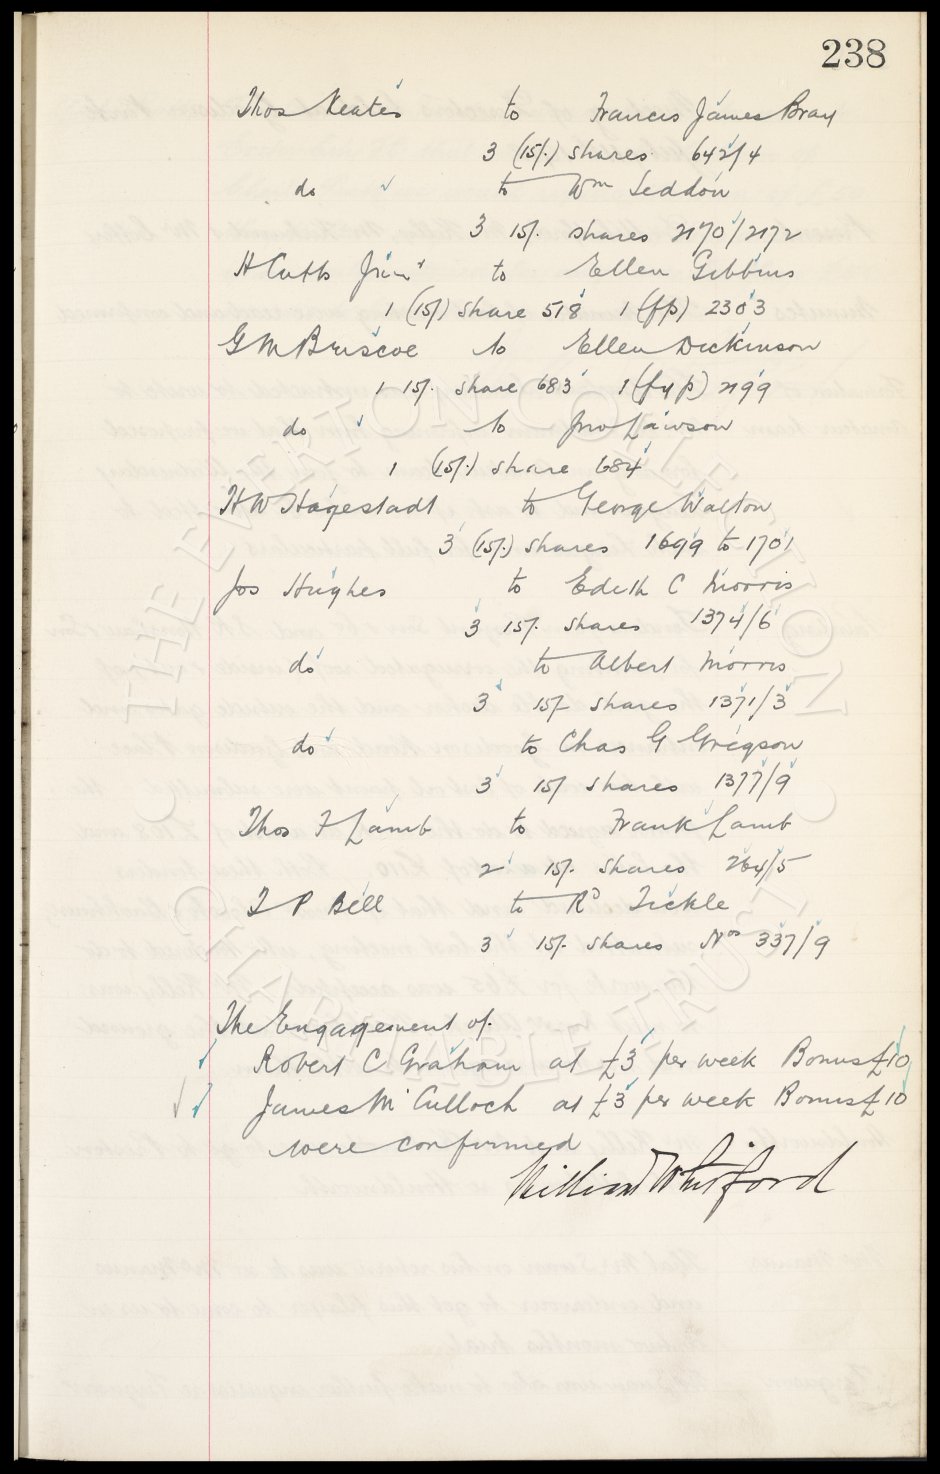 238
Thos Keates to Francis James Bray
3 (15/.) shares 642/4
do to Wm Seddon
3 15/. shares 2170/2172
H Cutts Junr to Ellen Gibbins
1 (15/) share 518 1 (fp) 2303
G M Briscoe to Ellen Dickinson
1 15/. share 683 1 (fy p) 2199
do to Jno Lawson
1 (15/.) share 684
H W Hagestadt to George Walton
3 (15/.) shares 1699 to 1701
Jos Hughes to Edith C Morris
3 15/. shares 1374/6
do to Albert Morris
3 15/ shares 1371/3
do to Chas G Gregson
3 15/ shares 1377/9
Thos F Lamb to Frank Lamb
2 15/. shares 264/5
T P Bell to Rd Tickle
3 15/. shares Nos 337/9
The Engagement of.
Robert C Graham at £3 per week Bonus £10
James McCulloch at £3 per week Bonus £10
were confirmed
William Whitford
THE EVERTON COLLECTION
CHARITABLE TRUST